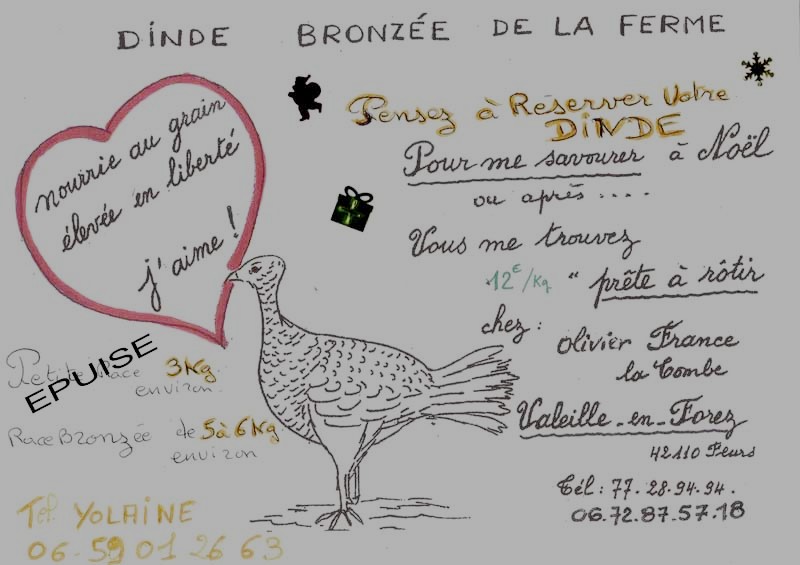 DINDE BRONZÉE DE LA FERME
nourrie au grain
élevée en liberté
j'aime !
Pensez à Réserver Votre
DINDE
Pour me savourer à Noël
ou après ....
Vous me trouvez
12€/Kg " prête à rôtir
chez :
Olivier France
la Combe
Valeille-en-Forez
42110 Feurs
Tél : 77.28.94.94.
06.72.87.57.18
Petite Race 3Kg
environ.
EPUISE
Race Bronzée de 5 à 6 Kg
environ
Tel. YOLAINE
06.59 01 26 63